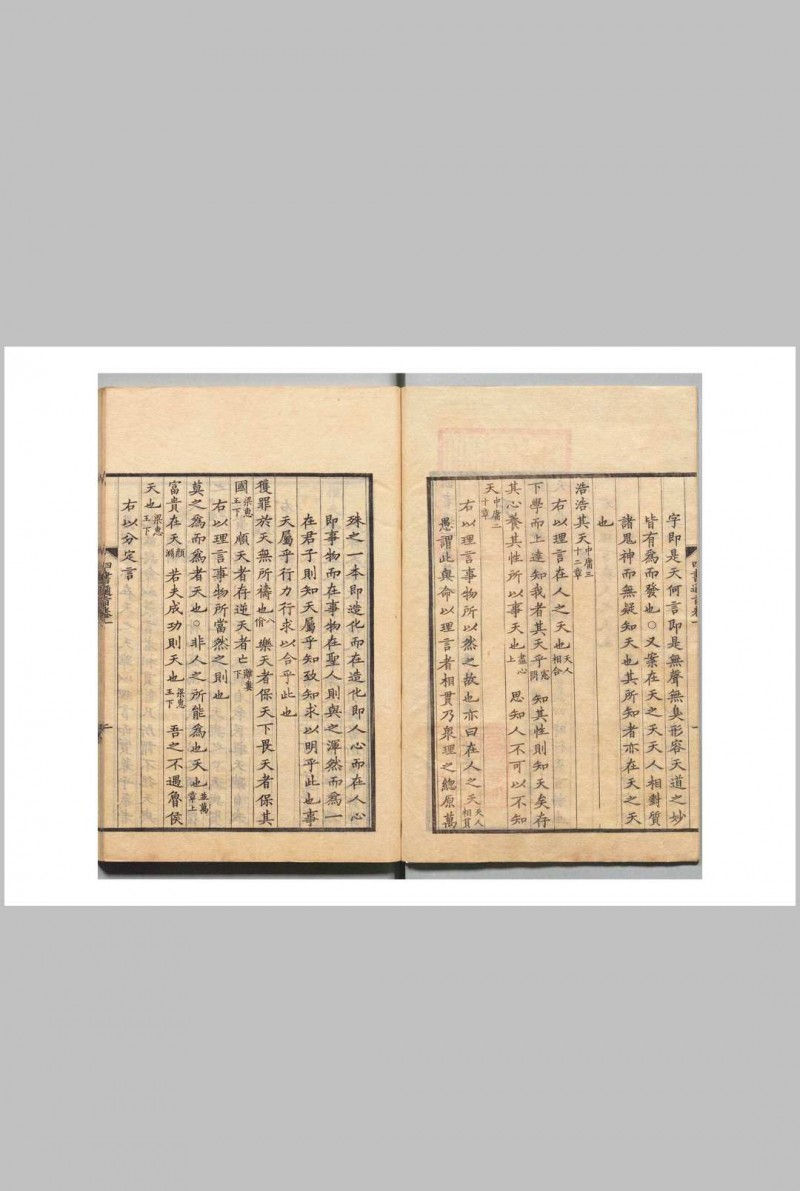 字即是天何言即是無聲無臭形容天道之妙
皆有為而發也○又案在天之天天人相對質
諸鬼神而無疑知天也其所知者亦在天之天
也
浩浩其天中庸三十二章
右以理言在人之天也天人相合
下學而上達知我者其天乎憲問 知其性則知天矣存
其心養其性所以事天也盡心上 思知人不可以不知
天中庸二十章
右以理言事物所以然之故也亦曰在人之天天人相貫
愚謂此與命以理言者相貫乃衆理之總原萬
殊之一本即造化而在造化即人心而在人心
即事物而在事物在聖人則與之渾然而為一
在君子則知天屬乎知致知求以明乎此也事
天屬乎行力行求以合乎此也
獲罪於天無所禱也八佾 樂天者保天下畏天者保其
國梁惠王下 順天者存逆天者亡離婁上
右以理言事物所當然之則也
莫之為而為者天也○非人之所能為也天也並萬章上
富貴在天顏淵 若夫成功則天也梁惠王下 吾之不遇魯侯
天也梁惠王下
右以分定言